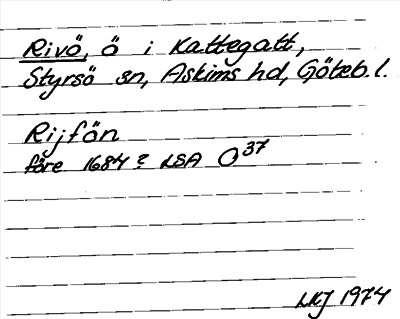 Rivö, ö i Kattegatt,
Styrsö sn, Askims hd, Göteb. l.
Rijfön
före 1684? LSA O 37
LKJ 1974